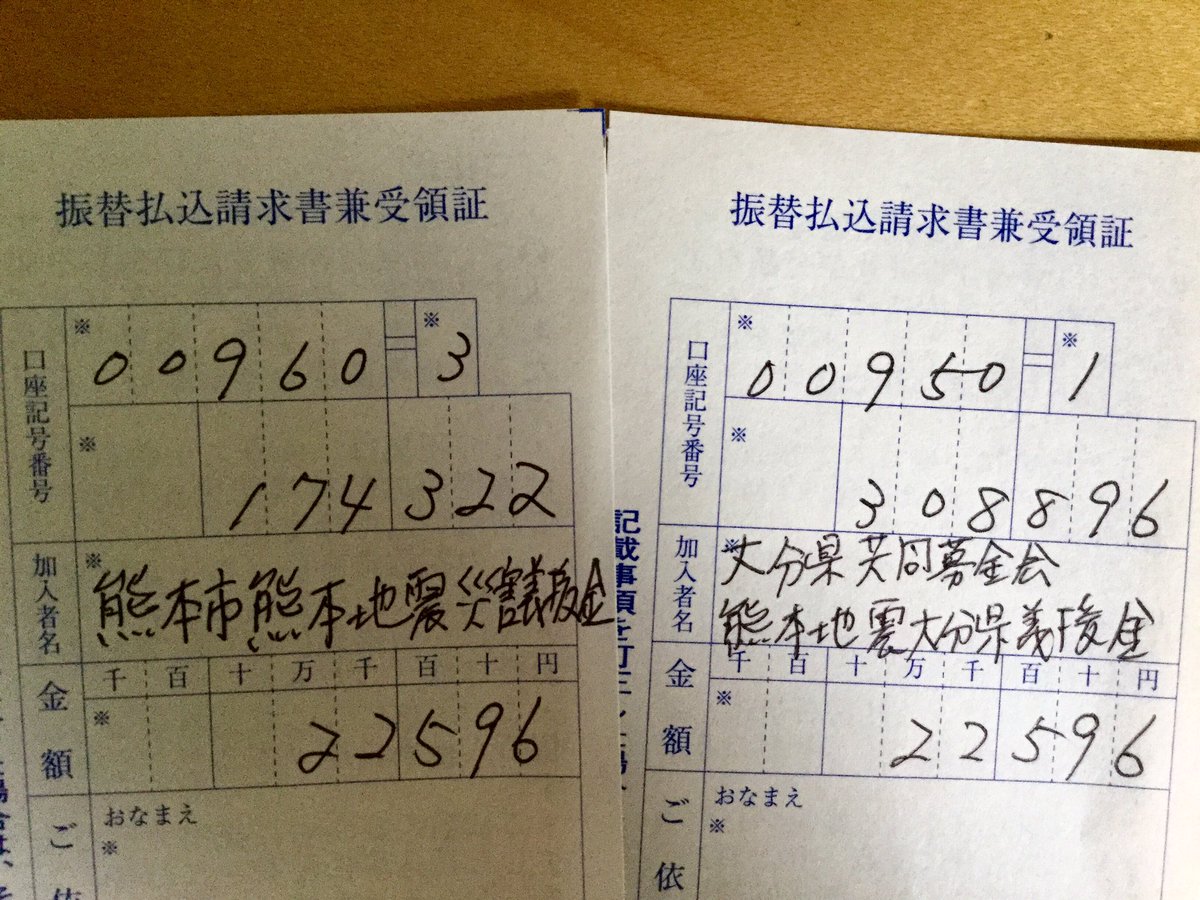 振替払込請求書兼受領証
口座記号番号
※ 00960 ※ 3
※ 174322
加入者名
※ 熊本市熊本地震災害義援金
千 百 十 万 千 百 十 円
金額
※ 22596
ご依
おなまえ
※
振替払込請求書兼受領証
口座記号番号
※ 00950 ※ 1
※ 308896
加入者名
※ 大分県共同募金会
熊本地震大分県義援金
千 百 十 万 千 百 十 円
金額
※ 22596
ご依
おなまえ
※
記載事項を訂正し
場合は、そ